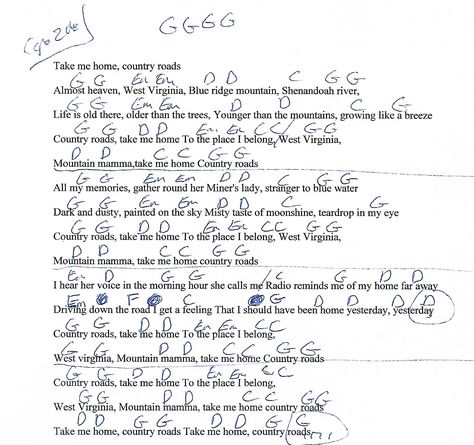 G G G G
Take me home, country roads
G G Em Em D D C G G
Almost heaven, West Virginia, Blue ridge mountain, Shenandoah river,
G G Em Em D D C G
Life is old there, older than the trees, Younger than the mountains, growing like a breeze
G G D D Em Em C C / G G
Country roads, take me home To the place I belong, West Virginia,
D D C C G G
Mountain mamma,take me home Country roads
G G Em Em D D C G
All my memories, gather round her Miner's lady, stranger to blue water
G G Em Em D D C G
Dark and dusty, painted on the sky Misty taste of moonshine, teardrop in my eye
G G D D Em Em C C G G
Country roads, take me home To the place I belong, West Virginia,
D D C C G G
Mountain mamma, take me home country roads
Em D G G / C G D D
I hear her voice in the morning hour she calls me Radio reminds me of my home far away
Em F C G D D D D
Driving down the road I get a feeling That I should have been home yesterday, yesterday
G G D D Em Em C C
Country roads, take me home To the place I belong,
G G D D C C G G
West virginia, Mountain mamma, take me home Country roads
G G D D Em Em C C
Country roads, take me home To the place I belong,
G G D D C C G G
West Virginia, Mountain mamma, take me home country roads
D D G G D D G G
Take me home, country roads Take me home, country roads